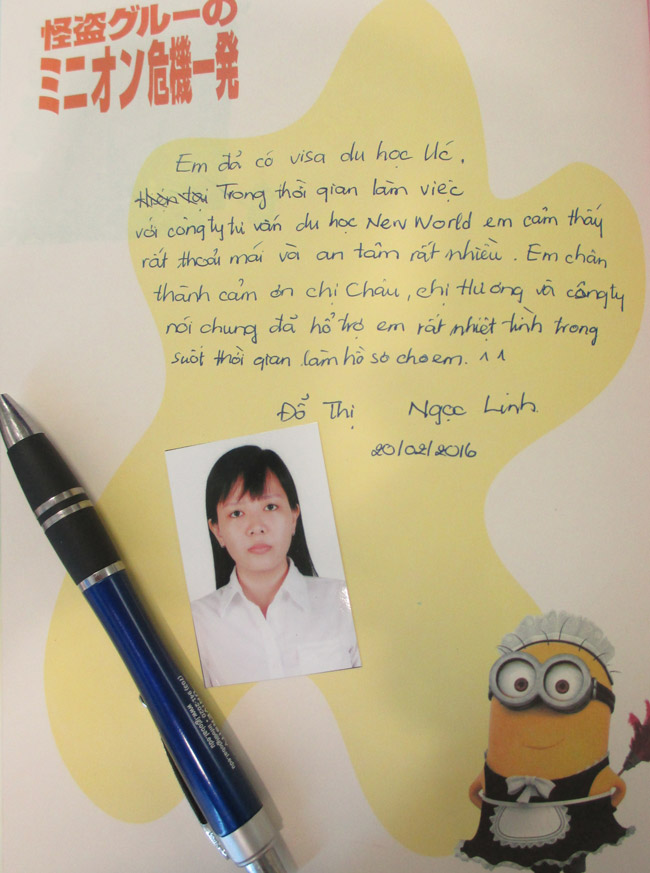 怪盗グルーの
ミニオン危機一発
Em đã có visa du học Úc.
Trong thời gian làm việc
với công ty tư vấn du học New World em cảm thấy
rất thoải mái và an tâm rất nhiều. Em chân
thành cảm ơn chị Châu, chị Hương và công ty
nói chung đã hổ trợ em rất nhiệt tình trong
suốt thời gian làm hồ sơ cho em. ^^
Đổ Thị Ngọc Linh.
20/02/2016